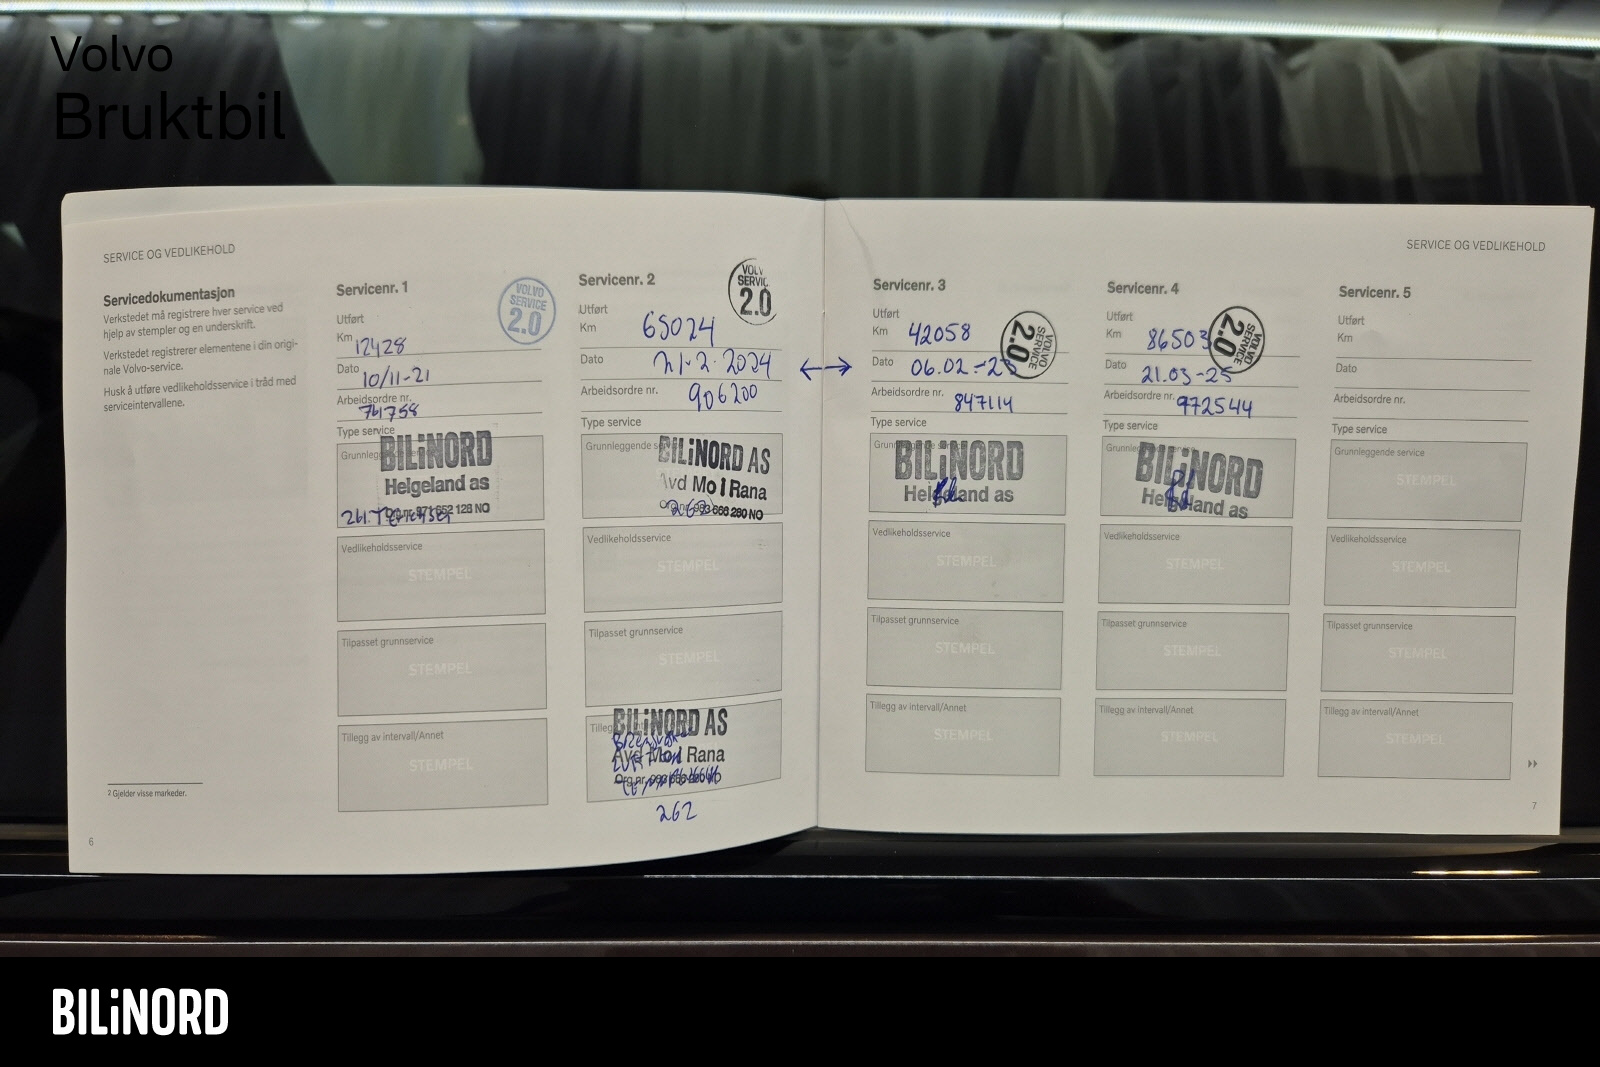 Volvo
Bruktbil
SERVICE OG VEDLIKEHOLD
Servicedokumentasjon
Verkstedet må registrere hver service ved
hjelp av stempler og en underskrift.
Verkstedet registrerer elementene i din origi-
nale Volvo-service.
Husk å utføre vedlikeholdsservice i tråd med
serviceintervallene.
2 Gjelder visse markeder.
6
Servicenr. 1
VOLVO
SERVICE
2.0
Utført
Km 12428
Dato 10/11-21
Arbeidsordre nr.
741758
Type service
Grunnleggende
BILiNORD
Helgeland as
128 NO
261.
Vedlikeholdsservice
STEMPEL
Tilpasset grunnservice
STEMPEL
Tillegg av intervall/Annet
STEMPEL
Servicenr. 2
VOLV
SERVIC
2.0
Utført
Km 65024
Dato 21.2.2024
Arbeidsordre nr. 906200
Type service
Grunnleggende
BILiNORD AS
Avd Mo I Rana
666 280 NO
262
Vedlikeholdsservice
STEMPEL
Tilpasset grunnservice
STEMPEL
BILiNORD AS
Avd Mo I Rana
262
SERVICE OG VEDLIKEHOLD
Servicenr. 3
VOLVO
SERVICE
2.0
Utført
Km 42058
Dato 06.02.-23
Arbeidsordre nr. 847114
Type service
BILiNORD
Helgeland as
Vedlikeholdsservice
STEMPEL
Tilpasset grunnservice
STEMPEL
Tillegg av intervall/Annet
STEMPEL
Servicenr. 4
VOLVO
SERVICE
2.0
Utført
Km 86503
Dato 21.03-25
Arbeidsordre nr. 972544
Type service
BILiNORD
Helgeland as
Vedlikeholdsservice
STEMPEL
Tilpasset grunnservice
STEMPEL
Tillegg av intervall/Annet
STEMPEL
Servicenr. 5
Utført
Km
Dato
Arbeidsordre nr.
Type service
Grunnleggende service
STEMPEL
Vedlikeholdsservice
STEMPEL
Tilpasset grunnservice
STEMPEL
Tillegg av intervall/Annet
STEMPEL
7
BILiNORD